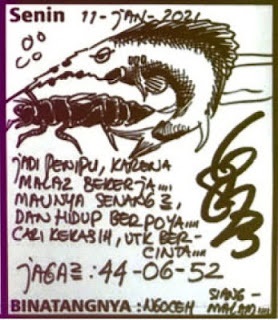 Senin 11-JAN-2021
JADI PENIPU, KARENA
MALAZ BEKERJA....
MAUNYA SENANG 2,
DAN HIDUP BERPOYA....
CARI KEKASIH, UTK BER-
CINTA....
JAGA 2 : 44-06-52
BINATANGNYA : NGOCEH SIANG-
MALAM....